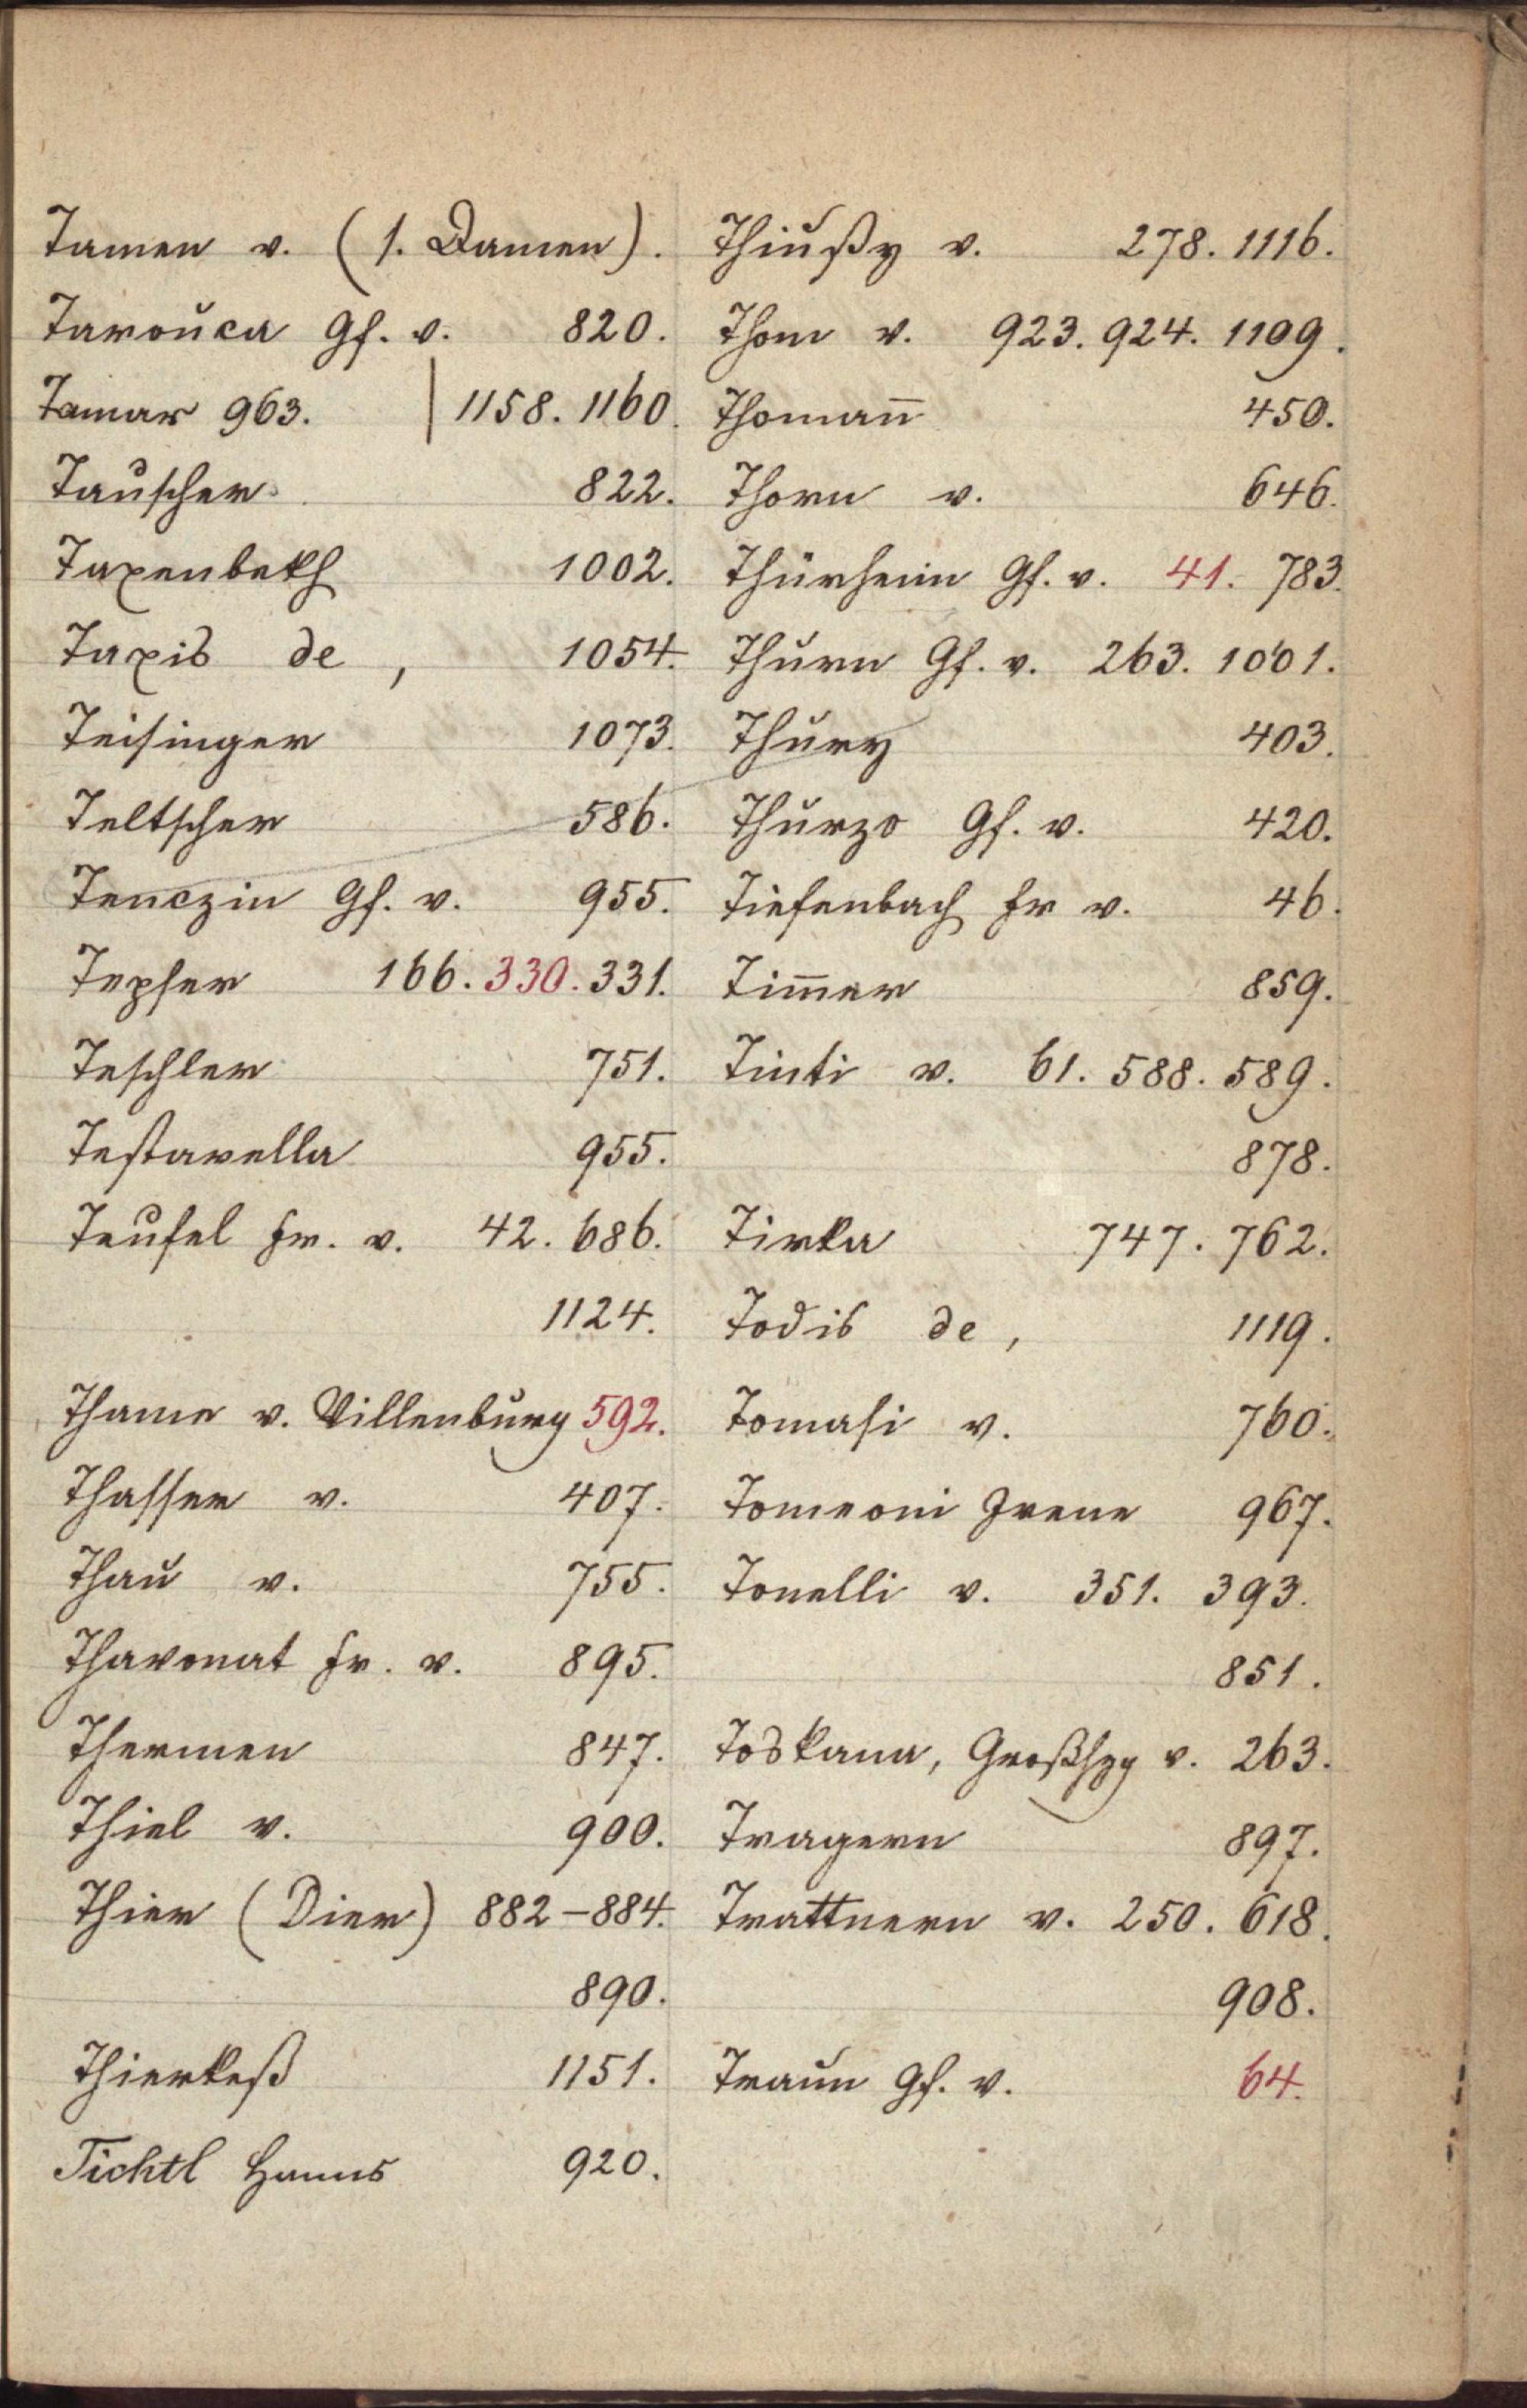 Tamen v. (s. Damen).
Tarouca Gf. v. 820.
Tamar 963. | 1158. 1160.
Tauscher 822.
Taxenbekh 1002.
Taxis de, 1054.
Teisinger 1073.
Teltscher 586.
Tenczin Gf. v. 955.
Tepser 166. 330. 331.
Teschler 751.
Testarella 955.
Teufel Fr. v. 42. 686.
1124.
Thame v. Villenburg 592.
Thasser v. 407.
Thau v. 755.
Thavonat Fr. v. 895.
Thermen 847.
Thiel v. 900.
Thier (Dier) 882–884.
890.
Thierkeß 1151.
Tichtl Hanns 920.
Thiußy v. 278. 1116.
Thom v. 923. 924. 1109.
Thomañ 450.
Thorn v. 646.
Thürheim Gf. v. 41. 783.
Thurn Gf. v. 263. 1001.
Thury 403.
Thurzo Gf. v. 420.
Tiefenbach Fr v. 46.
Tim̅er 859.
Tinti v. 61. 588. 589.
878.
Tirka 747. 762.
Todis de, 1119.
Tomasi v. 760.
Tomeoni Irene 967.
Tonelli v. 351. 393.
851.
Toskana, Großhzg v. 263.
Tragern 897.
Trattnern v. 250. 618.
908.
Traun Gf. v. 64.